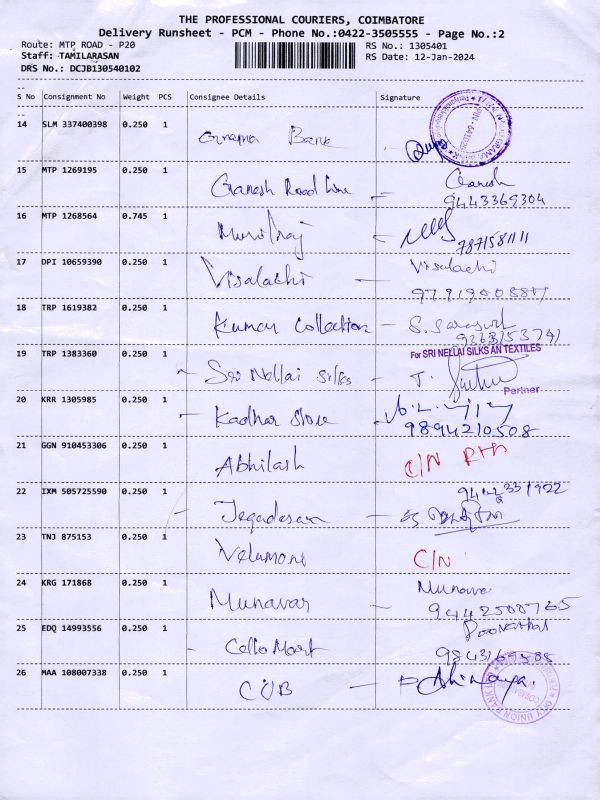 THE PROFESSIONAL COURIERS, COIMBATORE
Delivery Runsheet - PCM - Phone No.:0422-3505555 - Page No.:2
Route: MTP ROAD - P20 RS No.: 1305401
Staff: TAMILARASAN RS Date: 12-Jan-2024
DRS No.: DCJB130540102
S No Consignment No Weight PCS Consignee Details Signature
14 SLM 337400398 0.250 1
Bank
15 MTP 1269195 0.250 1
Ganesh Road Line - Ganesh
9443369304
16 MTP 1268564 0.745 1
7871581111
17 DPI 10659390 0.250 1
Visalachi Visalachi
18 TRP 1619382 0.250 1
Kumar Collection -
19 TRP 1383360 0.250 1 For SRI NELLAI SILKS AN TEXTILES
- Sri Nellai silks - T.
Partner
20 KRR 1305985 0.250 1
- Kadhar Store -
9894210508
21 GGN 910453306 0.250 1
Abhilash C/N
22 IXM 505725590 0.250 1
- Jegadesan -
23 TNJ 875153 0.250 1
Velumoni C/N
24 KRG 171868 0.250 1
Munavar -
25 EDQ 14993556 0.250 1
- Cello Mart -
26 MAA 108007338 0.250 1
CUB -